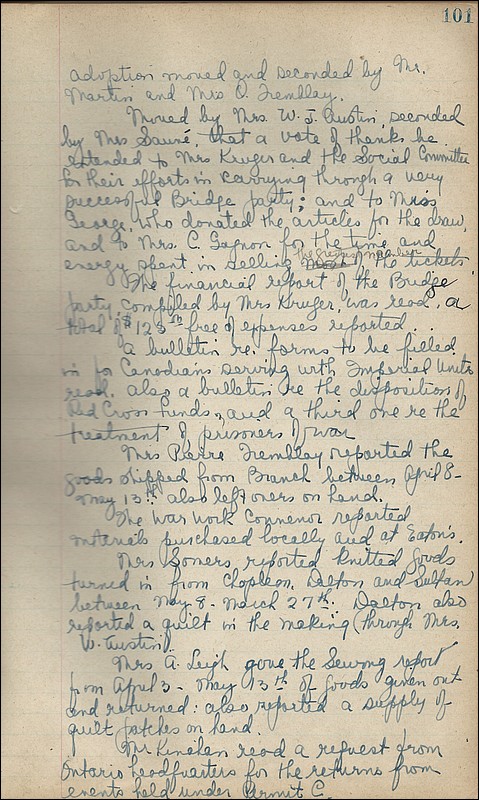 101
adoption moved and seconded by Mr.
Martin and Mrs O. Tremblay.
Moved by Mrs. W. J. Austin, seconded
by Mrs Sauné, that a vote of thanks be
extended to Mrs Kruger and the Social Committee
for their efforts in carrying through a very
successful Bridge party; and to Miss
George, who donated the articles for the draw,
and to Mrs. C. Gagnon for the time and
the greatest number
energy spent in selling of the tickets
The financial report of the Bridge
party, compiled by Mrs Kruger, was read, a
total of $123 free of expenses reported.
A bulletin re. forms to be filled
in for Canadians serving with Imperial Units
read. also a bulletin re the disposition of
Red Cross funds, and a third one re the
treatment of prisoners of war
Mrs Pierre Tremblay reported the
goods shipped from Branch between April 8-
May 13th also left overs on hand.
The War Work Convenor reported
materials purchased locally and at Eaton's.
Mrs Somers, reported knitted goods
turned in from Chapleau, Dalton and Sultan
between May 8 - March 27th. Dalton also
reported a quilt in the making (through Mrs.
W. Austin).
Mrs A. Leigh gave the Sewing report
from April 3 - May 13th of goods given out
and returned: also reported a supply of
quilt patches on hand.
Mr Kinahan read a request from
Ontario headquarters for the returns from
events held under Permit C.